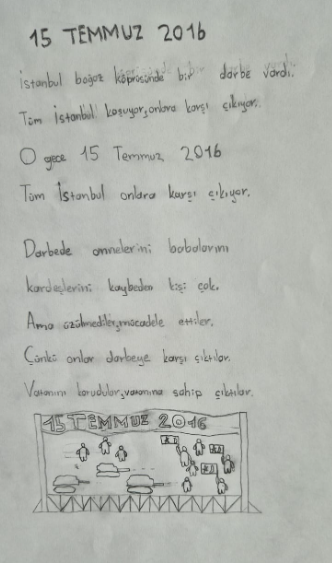 15 TEMMUZ 2016
İstanbul boğaz köprüsünde bir darbe vardı.
Tüm İstanbul koşuyor,onlara karşı çıkıyor.
O gece 15 Temmuz, 2016
Tüm İstanbul onlara karşı çıkıyor.
Darbede annelerini babalarını
kardeşlerini kaybeden kişi çok.
Ama üzülmediler,mücadele ettiler.
Çünkü onlar darbeye karşı çıktılar.
Vatanını korudular,vatanına sahip çıktılar.
15 TEMMUZ 2016